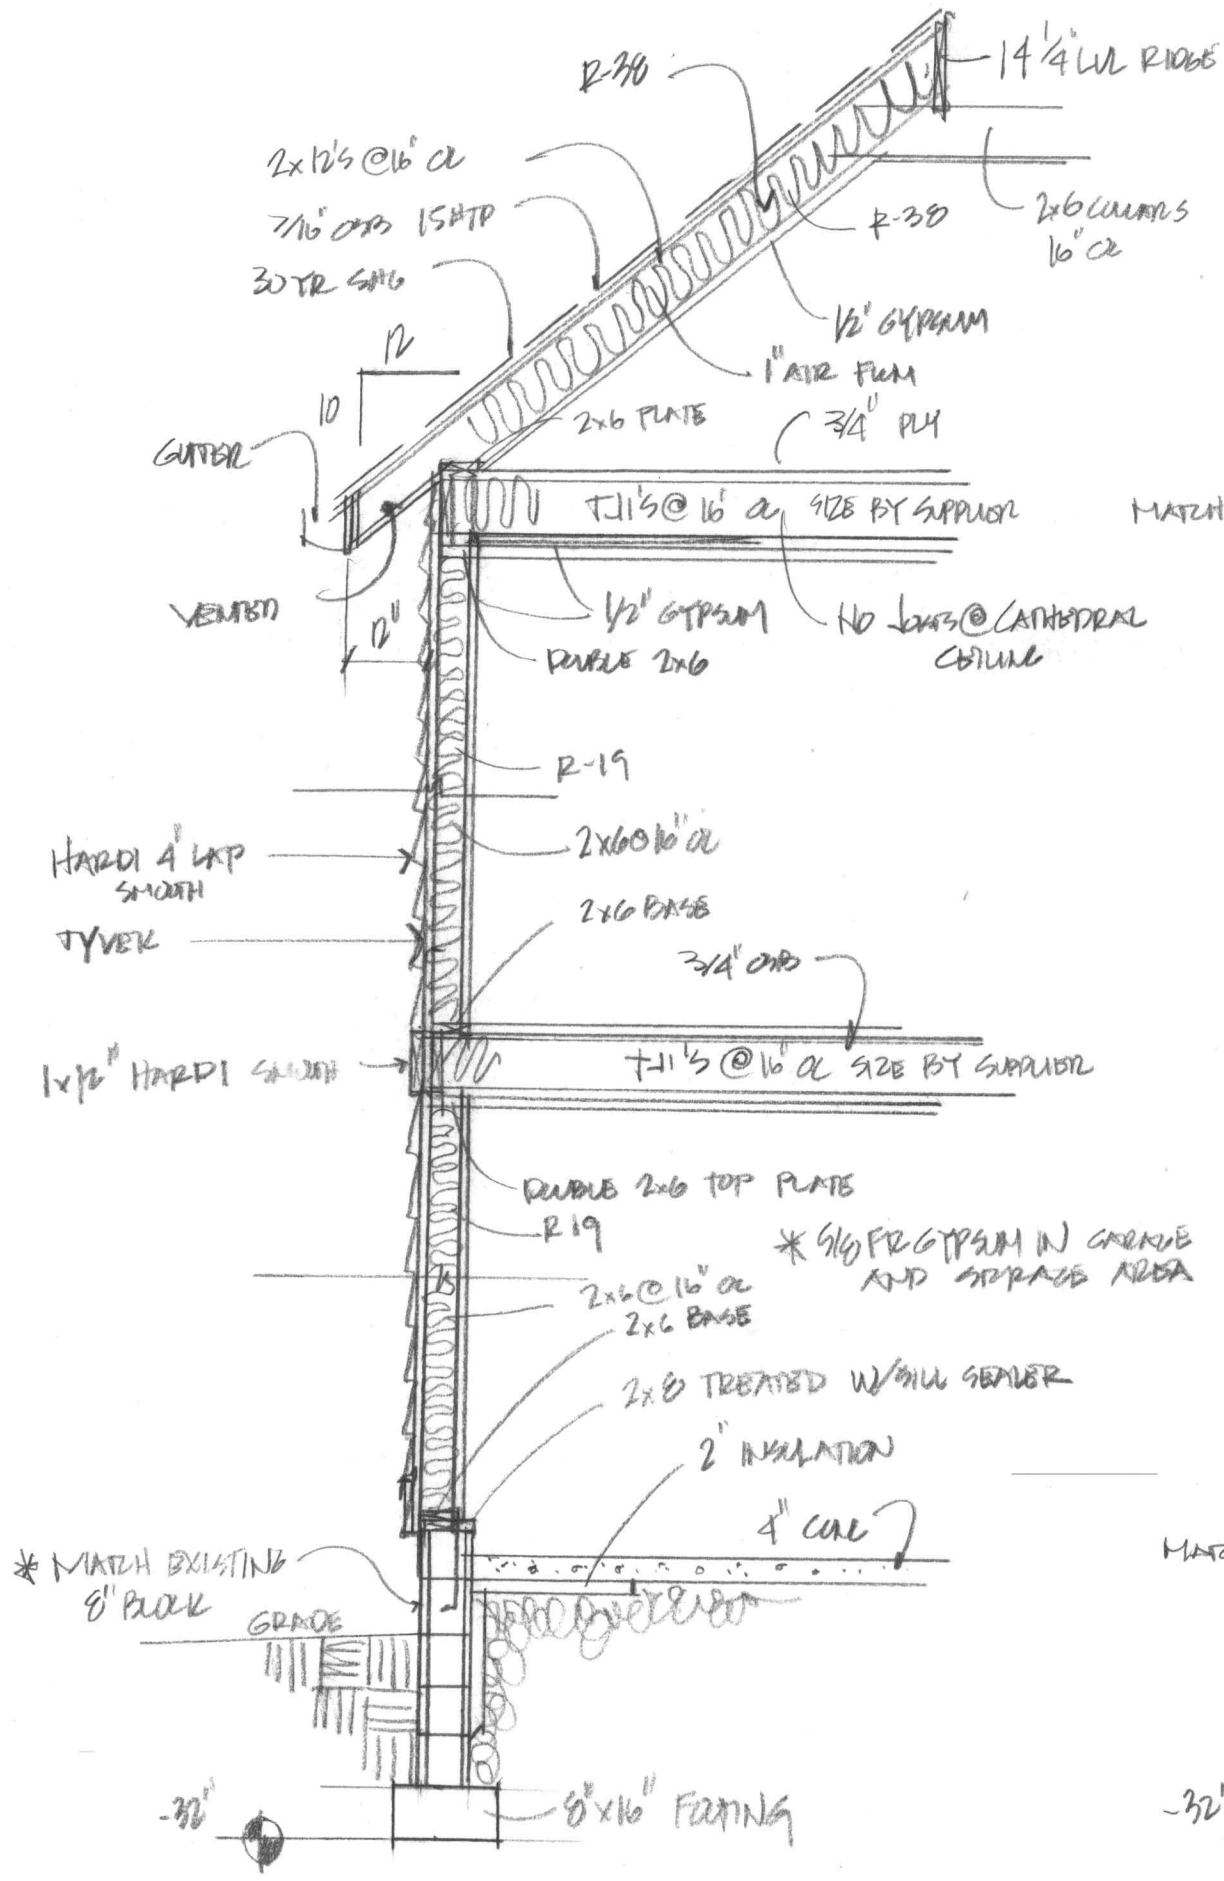 14 1/4" LVL RIDGE
R-38
2x12'S @ 16" OC
7/16" OSB 15# TP
30 YR SHG
R-38
2x6 COLLARS
16" OC
1/2" GYPSUM
1" AIR FLOW
12
10
2x6 PLATE
3/4" PLY
GUTTER
TJI'S @ 16" OC SIZE BY SUPPLIER
MATCH
VENTED
12"
1/2" GYPSUM
NO JOISTS @ CATHEDRAL
CEILING
DOUBLE 2x6
R-19
2x6 @ 16" OC
HARDI 4" LAP
SMOOTH
2x6 BASE
TYVEK
3/4" OSB
1x12" HARDI SMOOTH
TJI'S @ 16" OC SIZE BY SUPPLIER
DOUBLE 2x6 TOP PLATE
R19
* 5/8 FR GYPSUM IN GARAGE
AND STORAGE AREA
2x6 @ 16" OC
2x6 BASE
2x8 TREATED W/SILL SEALER
2" INSULATION
4" CONC
* MATCH EXISTING
8" BLOCK
GRADE
8"x16" FOOTING
-32"
-32"